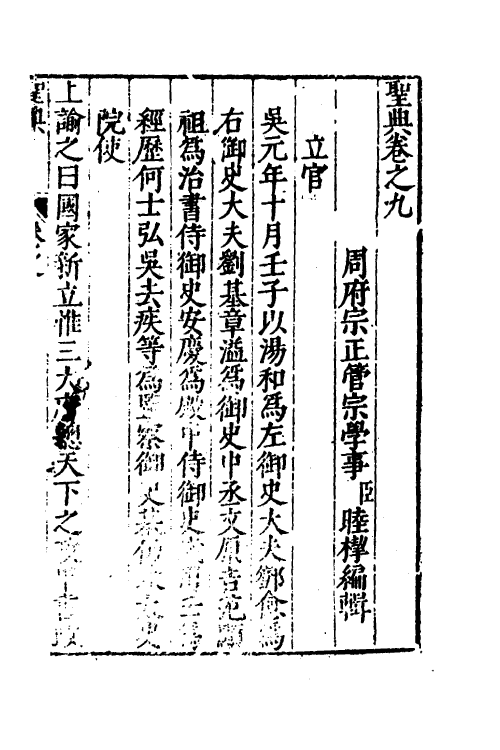 聖典卷之九
周府宗正管宗學事臣睦㮮編輯
立官
吳元年十月壬子以湯和爲左御史大夫鄧愈爲
右御史大夫劉基章溢爲御史中丞文原吉范顯
祖爲治書侍御史安慶爲殿中侍御史爲
經歷何士弘吳去疾等爲監察御史基仍太史
院使
上諭之曰國家新立惟三大府總天下之政中書政
聖典 卷之九